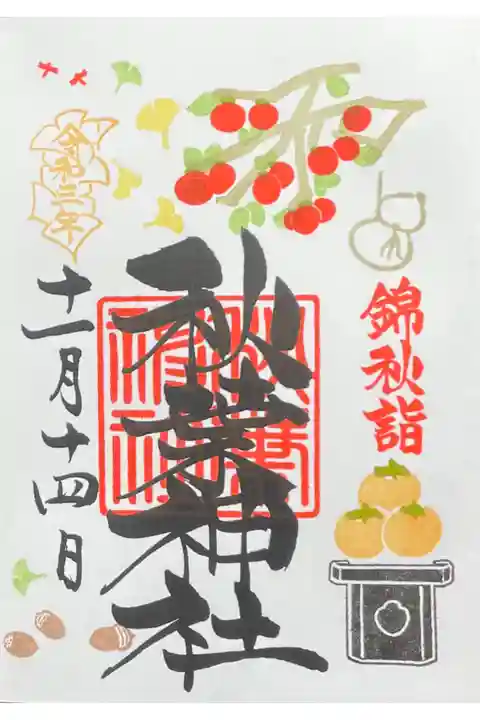 錦秋詣
秋葉神社
令和三年
十一月十四日